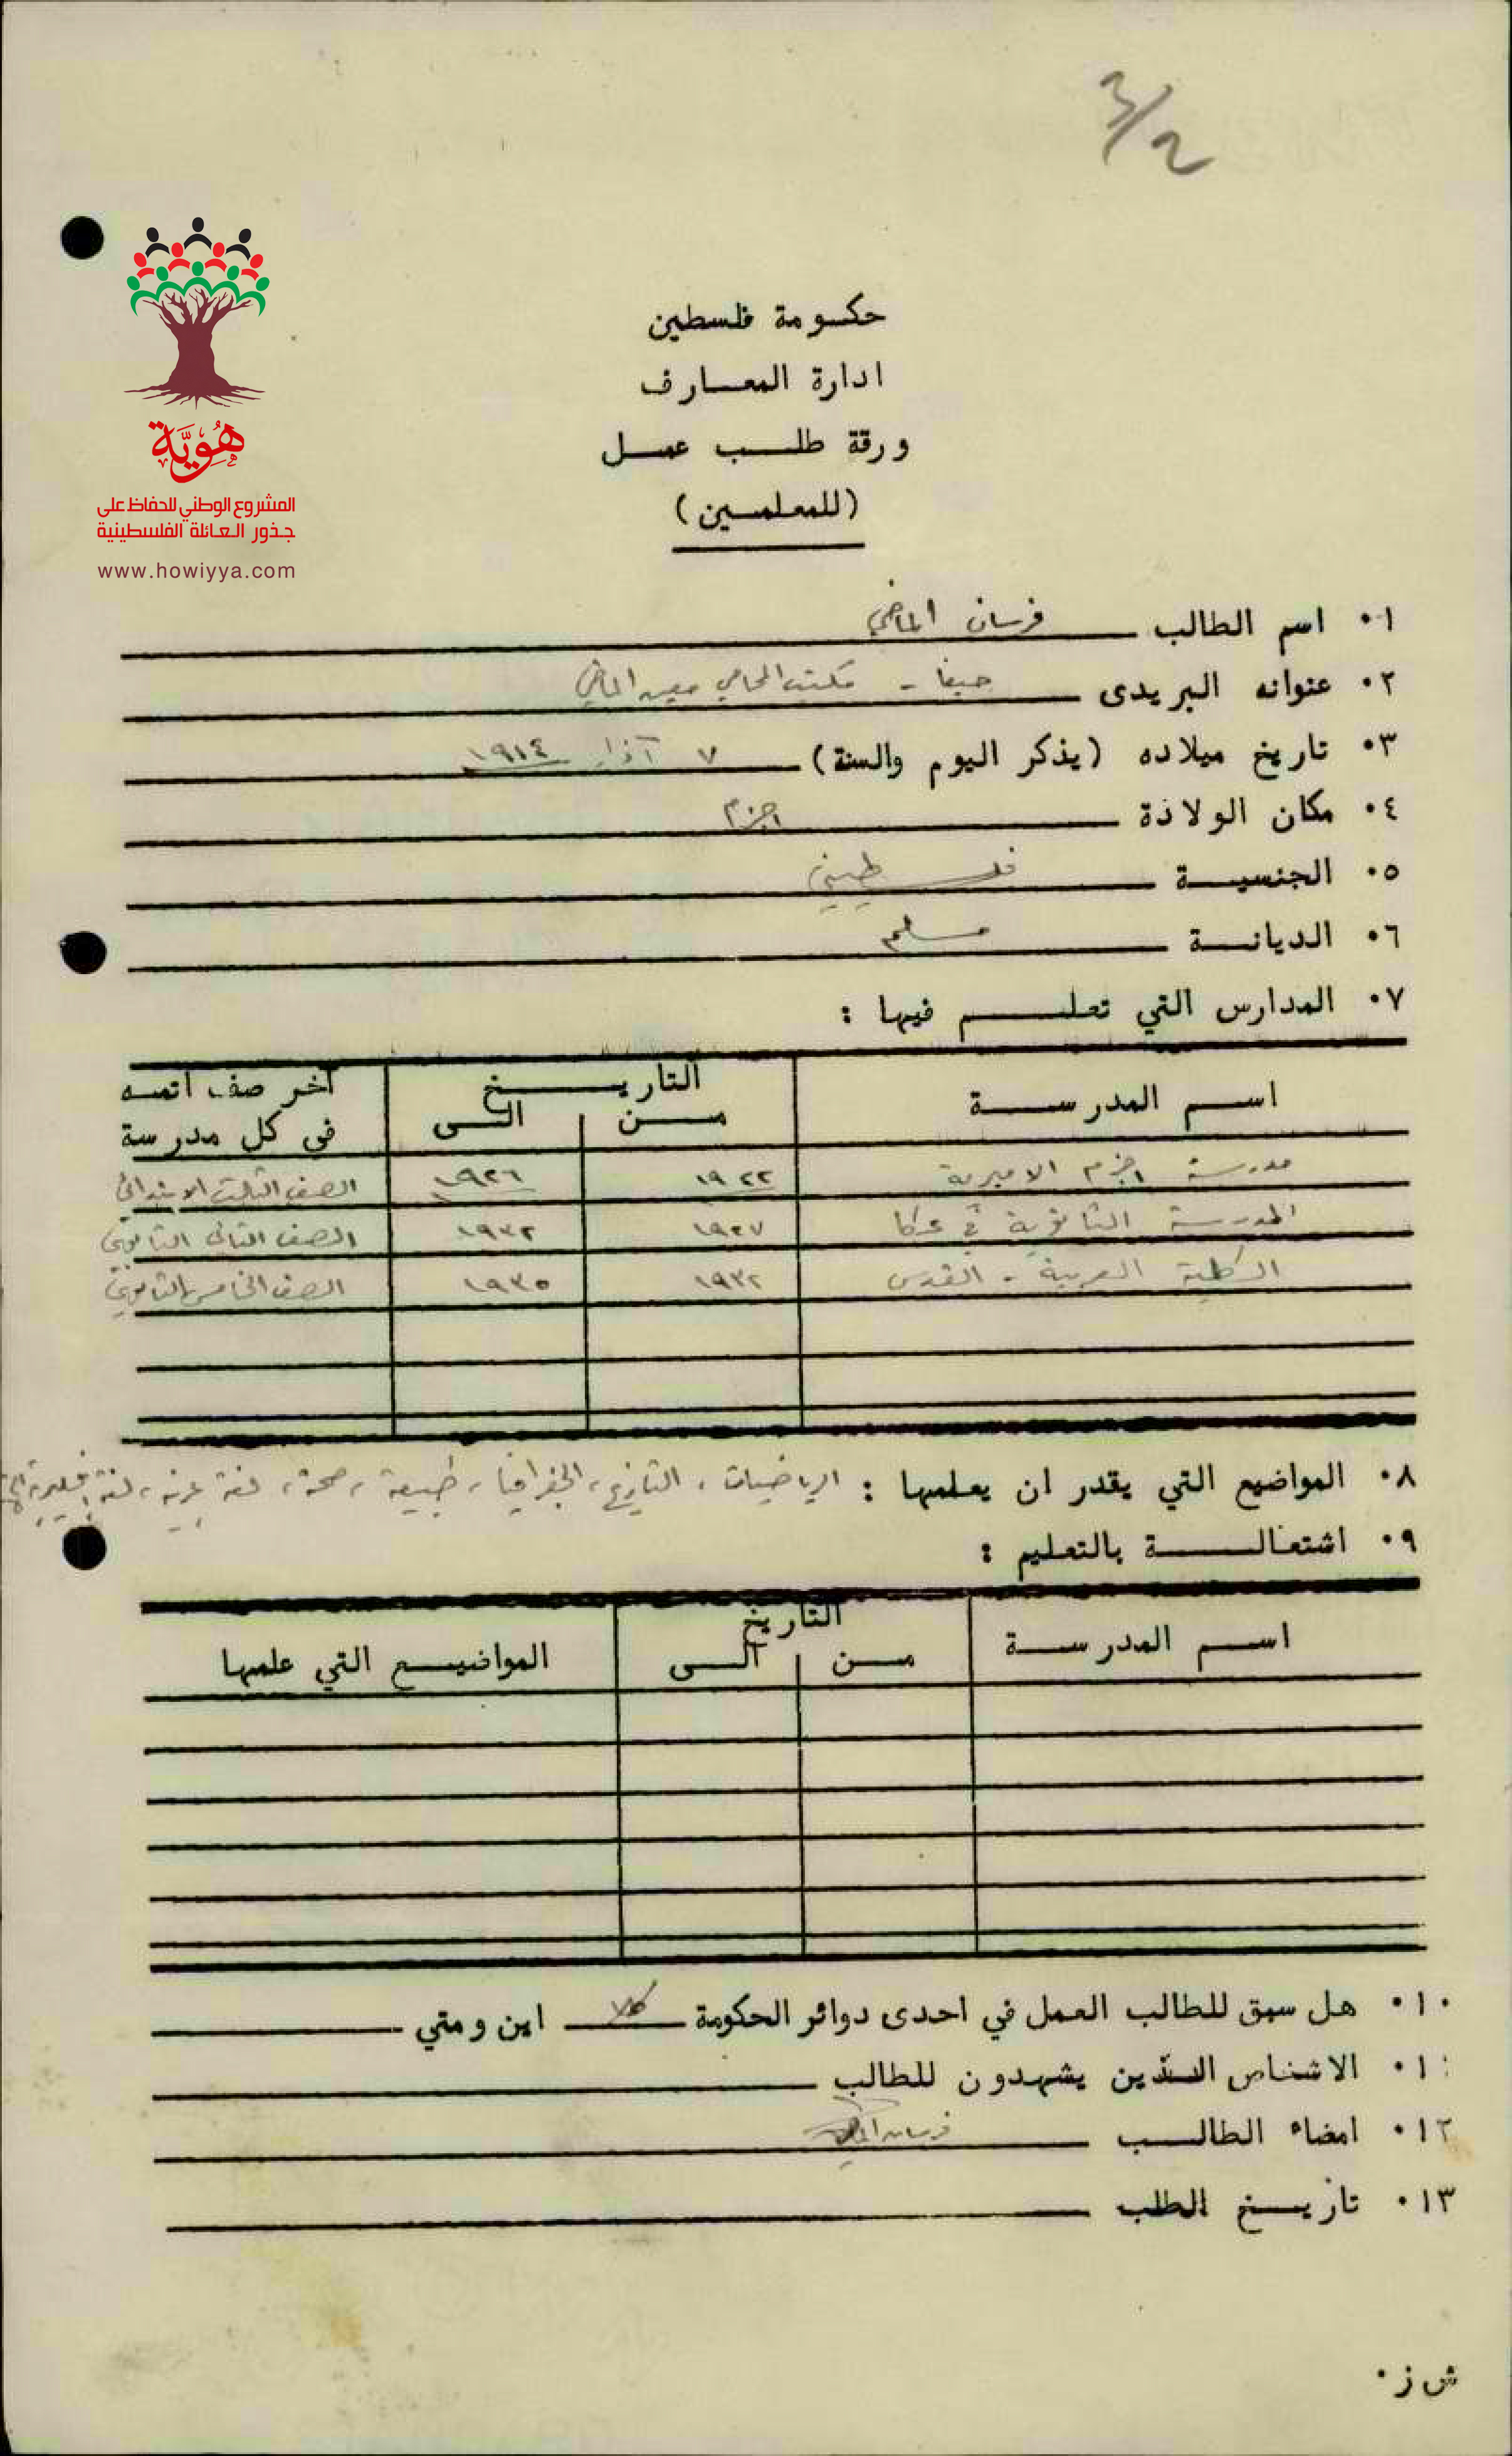 ٣/٢
هُوِيَّة
المشروع الوطني للحفاظ على
جذور العائلة الفلسطينية
www.howiyya.com
حكومة فلسطين
ادارة المعارف
ورقة طلب عمل
(للمعلمين)
١٠ اسم الطالب فرسان الماضي
٢٠ عنوانه البريدى حيفا - مكتب المحامي معين الماضي
٣٠ تاريخ ميلاده (يذكر اليوم والسنة) ٧ آذار ١٩١٤
٤٠ مكان الولادة اجزم
٥٠ الجنسية فلسطيني
٦٠ الديانة مسلم
٧٠ المدارس التي تعلم فيها :
اسم المدرسة التاريخ من الى آخر صف اتمه في كل مدرسة
مدرسة اجزم الاميرية ١٩٢٢ ١٩٢٦ الصف الثالث الابتدائي
المدرسة الثانوية في عكا ١٩٢٧ ١٩٣٢ الصف الثاني الثانوي
الكلية العربية - القدس ١٩٣٢ ١٩٣٥ الصف الخامس الثانوي
٨٠ المواضيع التي يقدر ان يعلمها : الرياضيات ، التاريخ ، الجغرافيا ، طبيعة ، صحة ، لغة عربية ، لغة انجليزية
٩٠ اشتغالة بالتعليم :
اسم المدرسة التاريخ من الى المواضيع التي علمها
١٠٠ هل سبق للطالب العمل في احدى دوائر الحكومة كلا اين ومتي
١١٠ الاشخاص الذين يشهدون للطالب
١٢٠ امضاء الطالب فرسان الماضي
١٣٠ تاريخ الطلب
ش ز٠